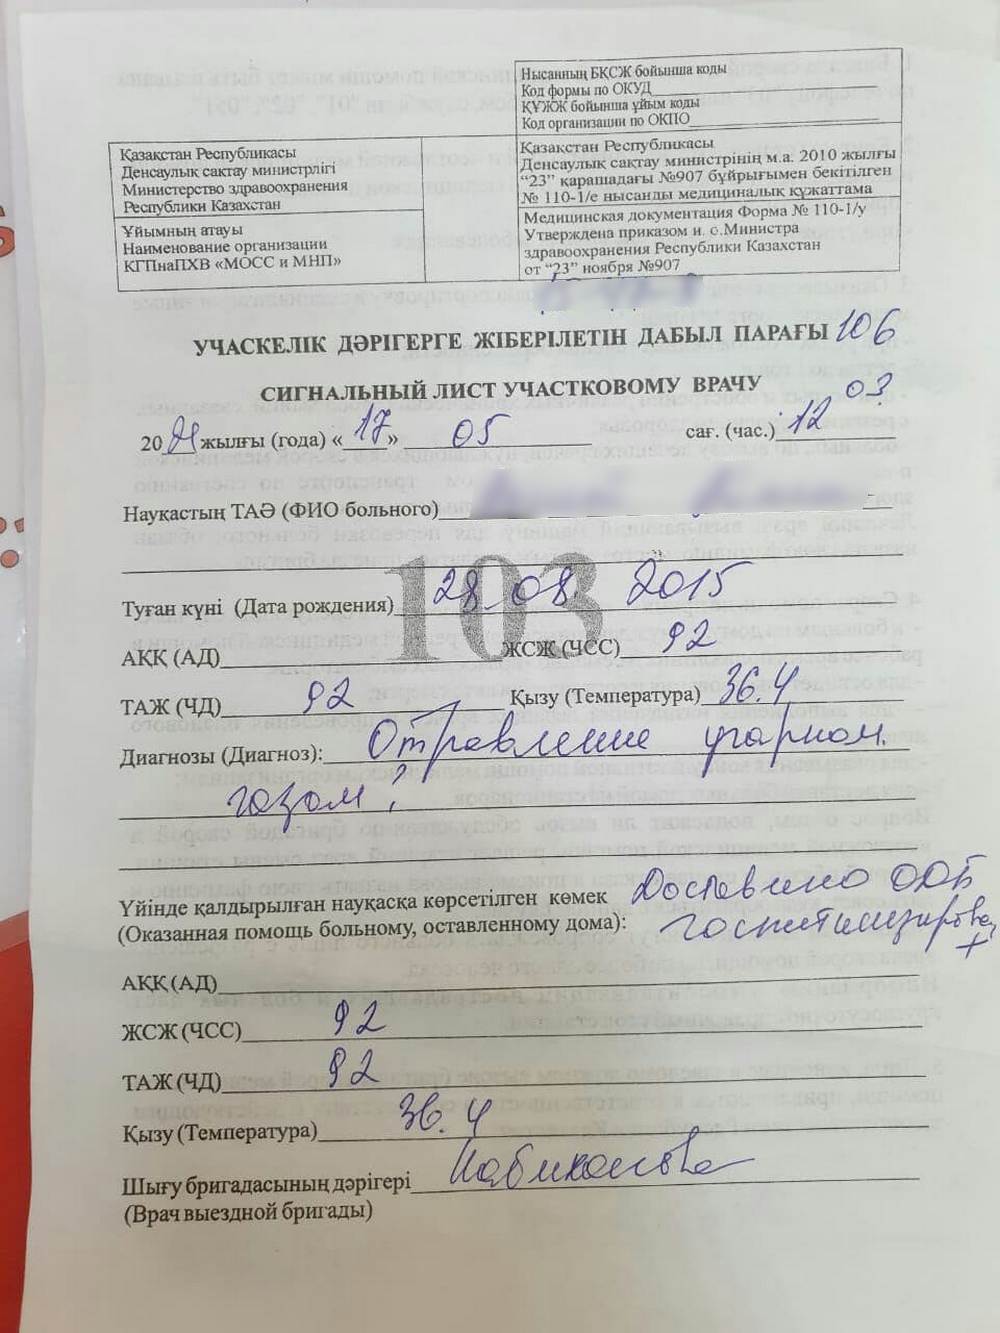 Нысанның БҚСЖ бойынша коды
Код формы по ОКУД
ҚҰЖЖ бойынша ұйым коды
Код организации по ОКПО
Қазақстан Республикасы
Денсаулық сақтау министрлігі
Министерство здравоохранения
Республики Казахстан
Қазақстан Республикасы
Денсаулық сақтау министрінің м.а. 2010 жылғы
“23” қарашадағы №907 бұйрығымен бекітілген
№ 110-1/е нысанды медициналық құжаттама
Ұйымның атауы
Наименование организации
КГПнаПХВ «МОСС и МНП»
Медицинская документация Форма № 110-1/у
Утверждена приказом и. о.Министра
здравоохранения Республики Казахстан
от “23” ноября №907
УЧАСКЕЛІК ДӘРІГЕРГЕ ЖІБЕРІЛЕТІН ДАБЫЛ ПАРАҒЫ 106
СИГНАЛЬНЫЙ ЛИСТ УЧАСТКОВОМУ ВРАЧУ
20 21 жылғы (года) « 17 » 05 сағ. (час.) 12 03
Науқастың ТАӘ (ФИО больного)
103
Туған күні (Дата рождения) 28.08 2015
АҚҚ (АД) ЖСЖ (ЧСС) 92
ТАЖ (ЧД) 92 Қызу (Температура) 36.4
Диагнозы (Диагноз): Отравление угарном
газом?
Үйінде қалдырылған науқасқа көрсетілген көмек Доставлено ОДБ
(Оказанная помощь больному, оставленному дома):
АҚҚ (АД)
ЖСЖ (ЧСС) 92
ТАЖ (ЧД) 92
Қызу (Температура) 36.4
Шығу бригадасының дәрігері
(Врач выездной бригады)